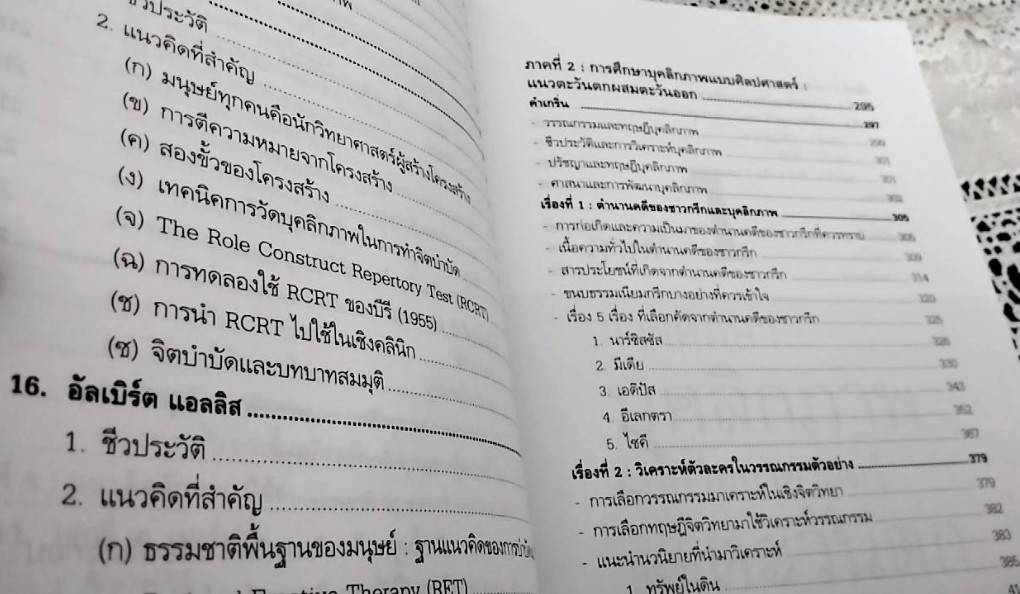 ชีวประวัติ
2. แนวคิดที่สำคัญ
(ก) มนุษย์ทุกคนคือนักวิทยาศาสตร์ผู้สร้างโครงสร้าง
(ข) การตีความหมายจากโครงสร้าง
(ค) สองขั้วของโครงสร้าง
(ง) เทคนิคการวัดบุคลิกภาพในการทำจิตบำบัด
(จ) The Role Construct Repertory Test (RCRT)
(ฉ) การทดลองใช้ RCRT ของบีรี (1955)
(ช) การนำ RCRT ไปใช้ในเชิงคลินิก
(ซ) จิตบำบัดและบทบาทสมมุติ
16. อัลเบิร์ต แอลลิส
1. ชีวประวัติ
2. แนวคิดที่สำคัญ
(ก) ธรรมชาติพื้นฐานของมนุษย์ : ฐานแนวคิดของการบำบัด
Emotive Therapy (RET)
ภาคที่ 2 : การศึกษาบุคลิกภาพแบบศิลปศาสตร์ :
แนวตะวันตกผสมตะวันออก 295
คำเกริ่น 297
- วรรณกรรมและทฤษฎีบุคลิกภาพ 299
- ชีวประวัติและการวิเคราะห์บุคลิกภาพ 301
- ปรัชญาและทฤษฎีบุคลิกภาพ 301
- ศาสนาและการพัฒนาบุคลิกภาพ 302
เรื่องที่ 1 : ตำนานคดีของชาวกรีกและบุคลิกภาพ 305
- การก่อเกิดและความเป็นมาของตำนานคดีของชาวกรีกที่ควรทราบ 305
- เนื้อความทั่วไปในตำนานคดีของชาวกรีก 309
- สารประโยชน์ที่เกิดจากตำนานคดีของชาวกรีก 314
- ขนบธรรมเนียมกรีกบางอย่างที่ควรเข้าใจ 320
- เรื่อง 5 เรื่อง ที่เลือกคัดจากตำนานคดีของชาวกรีก 325
1. นาร์ซิสซัส 326
2. มีเดีย 330
3. เอดิปัส 343
4. อีเลกตรา 352
5. ไซคี 367
เรื่องที่ 2 : วิเคราะห์ตัวละครในวรรณกรรมตัวอย่าง 379
- การเลือกวรรณกรรมมาเคราะห์ในเชิงจิตวิทยา 379
- การเลือกทฤษฎีจิตวิทยามาใช้วิเคราะห์วรรณกรรม 382
- แนะนำนวนิยายที่นำมาวิเคราะห์ 383
1. ทรัพย์ในดิน 385